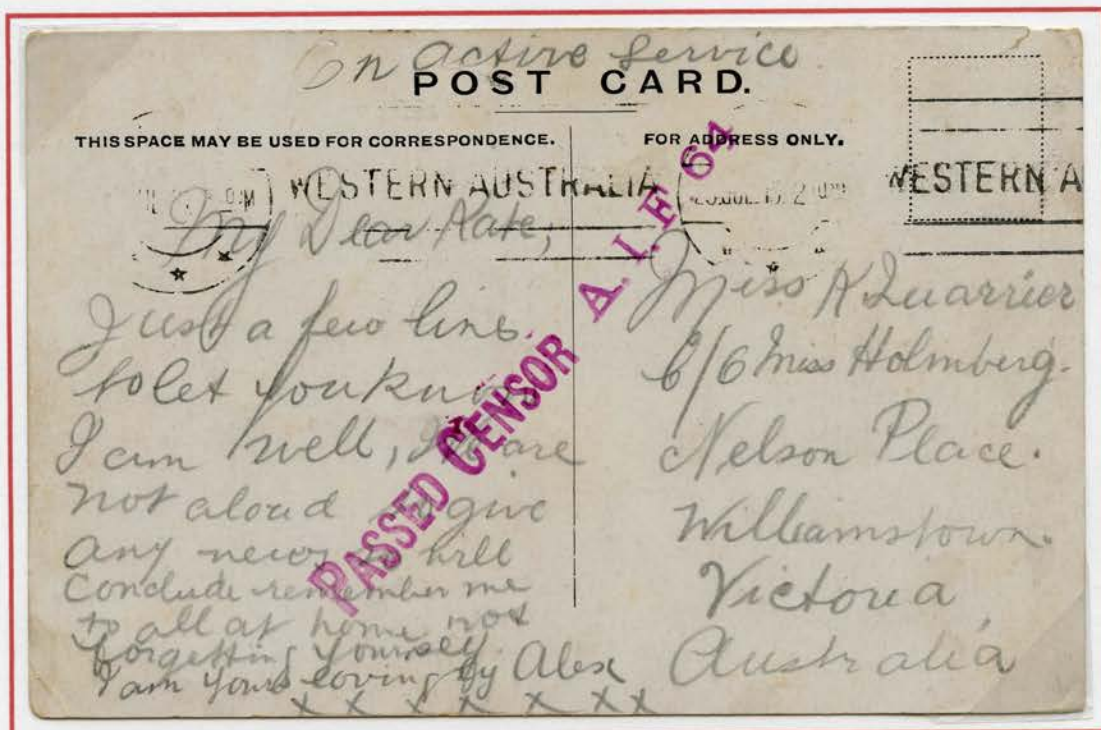 On active Service
POST CARD.
THIS SPACE MAY BE USED FOR CORRESPONDENCE.
FOR ADDRESS ONLY.
WESTERN AUSTRALIA
WESTERN A
PASSED CENSOR A.I.F 64
My Dear Kate,
Just a few lins
to let you know
I am well, we are
not aloud to give
any news so will
Conclude remember me
to all at home not
forgetting yourself.
I am yours lovingly Alex
x x x x x x x
Miss K Quarrier
C/o Miss Holmberg.
Nelson Place.
Williamstown.
Victoria
Australia